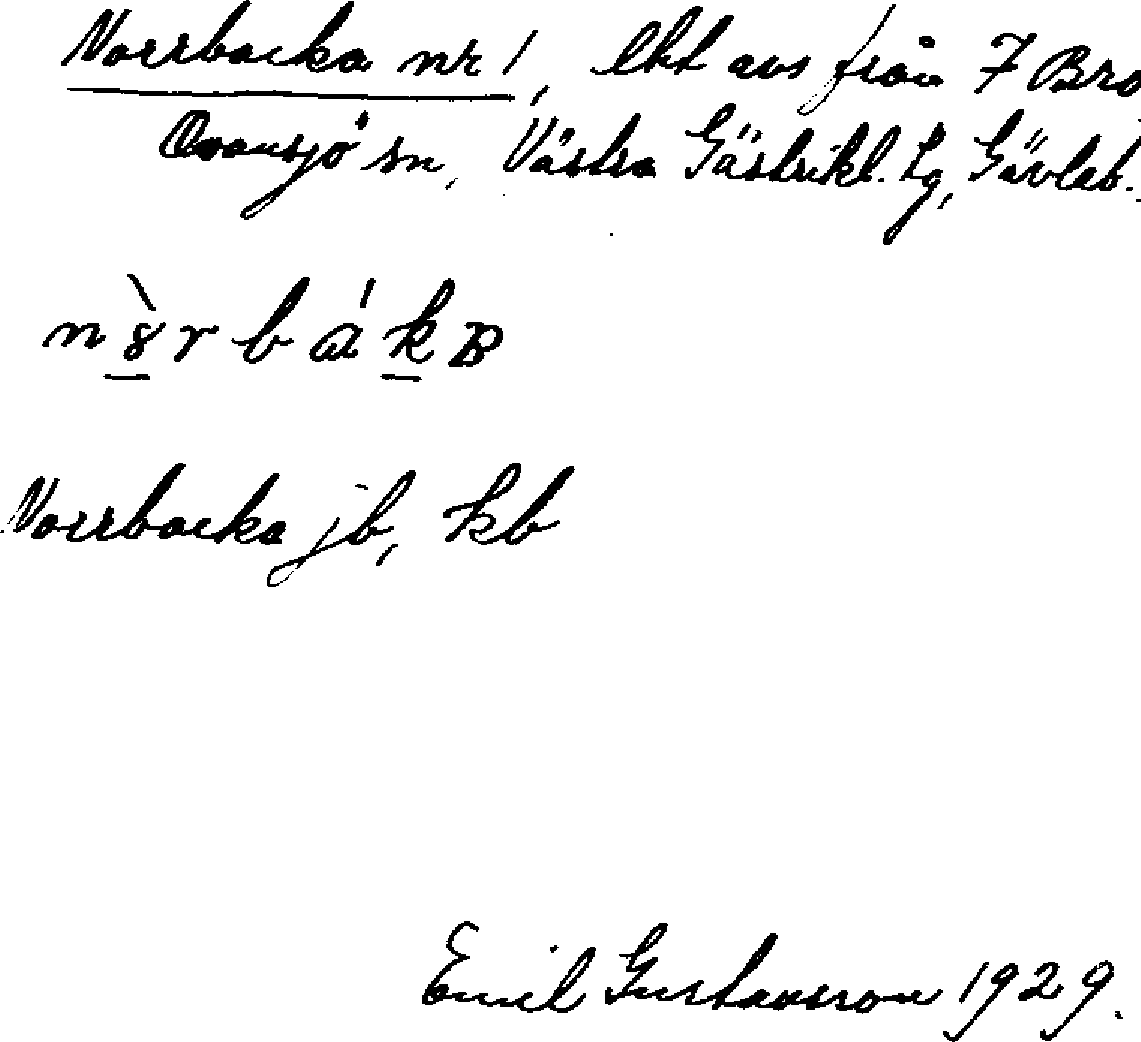 Norrbacka nr 1, lht avs från 7 Bro
Ovansjö sn, Västra Gästrikl. Lg, Gävleb.
n ὸ̱ r b á ḵ ʙ
Norrbacka jb, kb
Emil Gustavsson 1929.